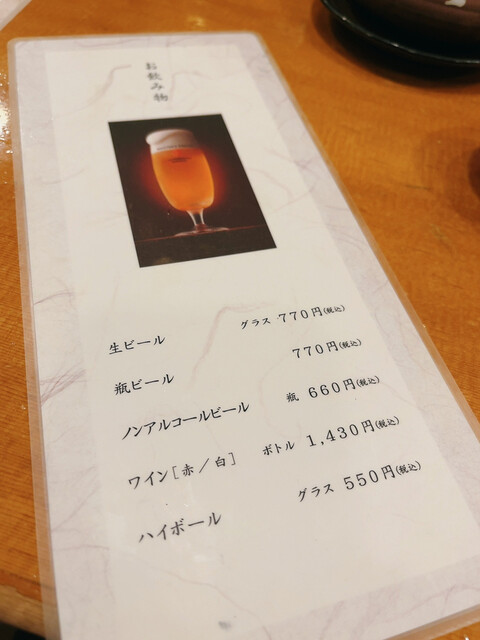 お飲み物
生ビール グラス 770円(税込)
瓶ビール 770円(税込)
ノンアルコールビール 瓶 660円(税込)
ワイン[赤/白] ボトル 1,430円(税込)
ハイボール グラス 550円(税込)